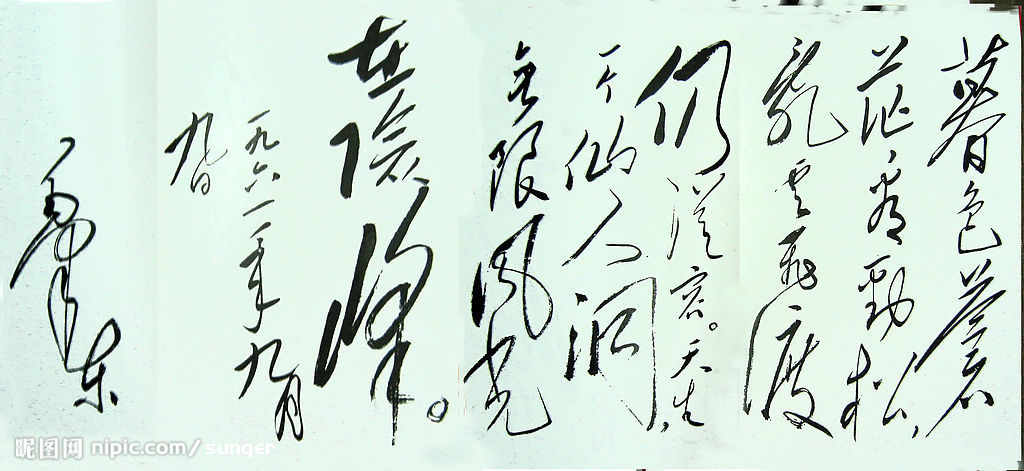 暮色苍
茫看劲松,
乱云飞度
仍从容。天生
一个仙人洞,
无限风光
在险峰。
一九六一年九月
九日
毛泽东
昵图网 nipic.com/sunqer